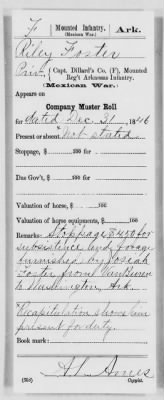 F | Mounted Infantry, | Ark.
(Mexican War.)
Riley Foster
Priv, Capt. Dillard's Co. (F), Mounted
Reg't Arkansas Infantry.
(Mexican War.)
Appears on
Company Muster Roll
for dated Dec 31, 1846
Present or absent Not stated
Stoppage, $ 100 for
Due Gov't, $ 100 for
Valuation of horse, $ 100
Valuation of horse equipments, $ 100
Remarks: Stoppage $4.50 for
subsistence and forage
furnished by Josiah
Foster from Van Buren
to Washington, Ark.
Recapitulation shows him
present for duty.
Book mark:
Copyist.